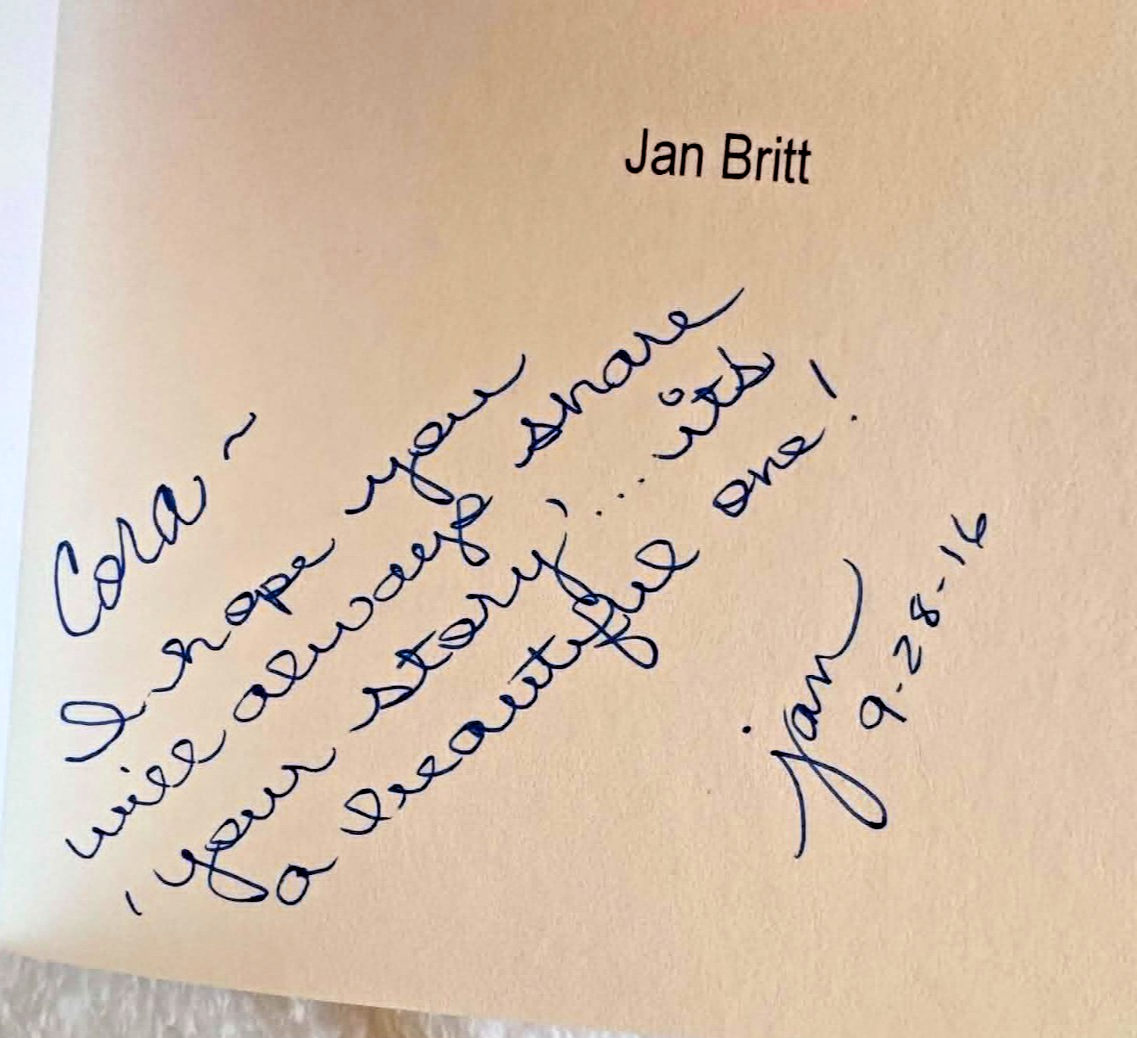 Jan Britt
Cora ~
I hope you
will always share
'your story'... it's
a beautiful one!
Jan
9-28-16